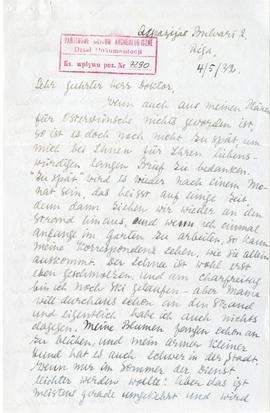 Aspazijas Bulvars 2.
Riga,
4/5/32.
PAŃSTWOWE MUZEUM ARCHEOLOGICZNE
Dział Dokumentacji
Ks. wpływu poz. Nr
Sehr geehrter Herr Doktor,
Wenn auch aus meinen Plänen
für Osterwünsche nichts geworden ist,
so ist es doch noch nicht zu spät, um
mich bei Ihnen für Ihren liebens-
würdigen langen Brief zu bedanken.
"Zu spät" wird es wieder nach einem Mo-
nat sein, das heisst auf einige Zeit,
denn dann ziehen wir wieder an den
Strand hinaus, und wenn ich einmal
anfange im Garten zu arbeiten, so kann
meine Korrespondenz sehen, wie sie allein
auskommt. Der Schnee ist wohl erst
eben geschmolzen, und am Charfreitag
bin ich noch Ski gelaufen – aber Mama
will durchaus schon an den Strand
und eigentlich habe ich auch nichts
dagegen. Meine Blumen fangen schon an
zu blühen, und mein armer kleiner
Hund hat es auch schwer in der Stadt.
Wenn nur im Sommer der Dienst
leichter werden wollte! Aber das ist
meistens gerade umgekehrt und wird